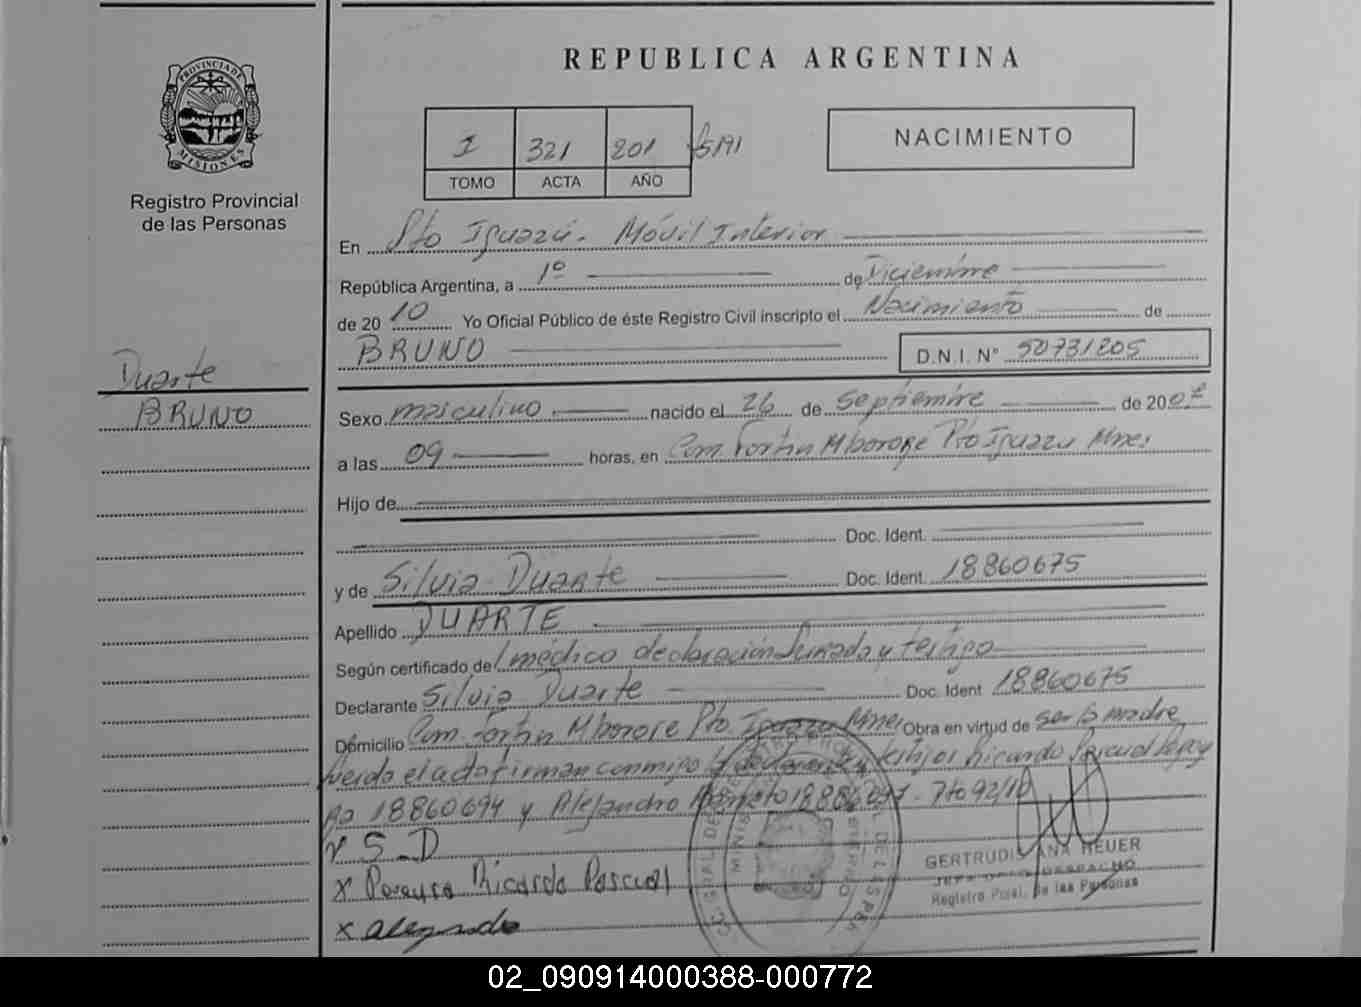 REPUBLICA ARGENTINA
PROVINCIA DE
MISIONES
Registro Provincial
de las Personas
I 321 201
TOMO ACTA AÑO
NACIMIENTO
En Pto Iguazú. Móvil Interior
República Argentina, a 1º de Diciembre
de 2010 Yo Oficial Público de éste Registro Civil inscripto el Nacimiento de
BRUNO D.N.I. Nº 50731205
Duarte
BRUNO
Sexo masculino nacido el 26 de septiembre de 200
a las 09 horas, en Com. Fortin Mborore Pto Iguazu Mnes
Hijo de
Doc. Ident.
y de Silvia Duarte Doc. Ident. 18860675
Apellido DUARTE
Según certificado de médico declaración Jurada y testigo
Declarante Silvia Duarte Doc. Ident 18860675
Domicilio Com. Fortin Mborore Pto Iguazu Mnes Obra en virtud de ser la madre
Leida el acta firman conmigo declarante y testigos Ricardo Pascual
18860694 y Alejandro
x S D
x Pereyra Ricardo Pascual
x
GERTRUDIS ANA HEUER
JEFA DPTO DESPACHO
Registro Pcial. de las Personas
02_090914000388-000772